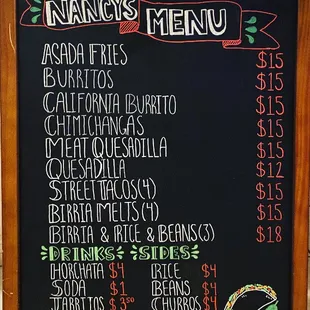 NANCY'S MENU
ASADA FRIES $15
BURRITOS $15
CALIFORNIA BURRITO $15
CHIMICHANGAS $15
MEAT QUESADILLA $15
QUESADILLA $12
STREET TACOS (4) $15
BIRRIA MELTS (4) $15
BIRRIA & RICE & BEANS (3) $18
DRINKS SIDES
HORCHATA $4 RICE $4
SODA $1 BEANS $4
JARRITOS $3.50 CHURROS $4